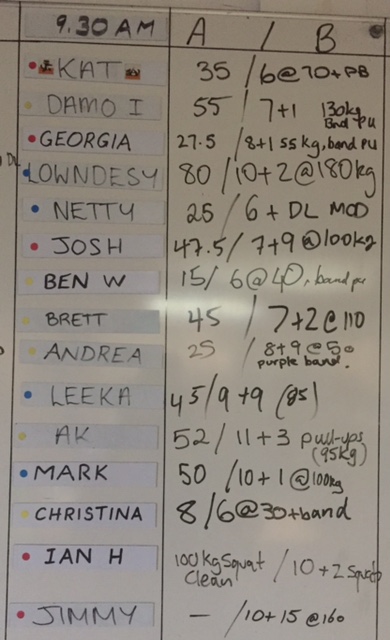 9.30 AM A / B
KAT 35 / 6@70+PB
DAMO I 55 / 7+1 130kg
Bnd PU
GEORGIA 27.5 / 8+1 55kg, band PU
LOWNDESY 80 / 10+2@180kg
NETTY 25 / 6 + DL MOD
JOSH 47.5 / 7+9 @100kg
BEN W 15 / 6@40, band pu
BRETT 45 / 7+2@110
ANDREA 25 / 8+9@50
purple band.
LEEKA 45/9+9 (85)
AK 52 / 11+3 pull-ups
(95kg)
MARK 50 / 10+1 @100kg
CHRISTINA 8 / 6@30+band
IAN H 100kg Squat / 10+2 Squats
Clean
JIMMY — / 10+15 @160